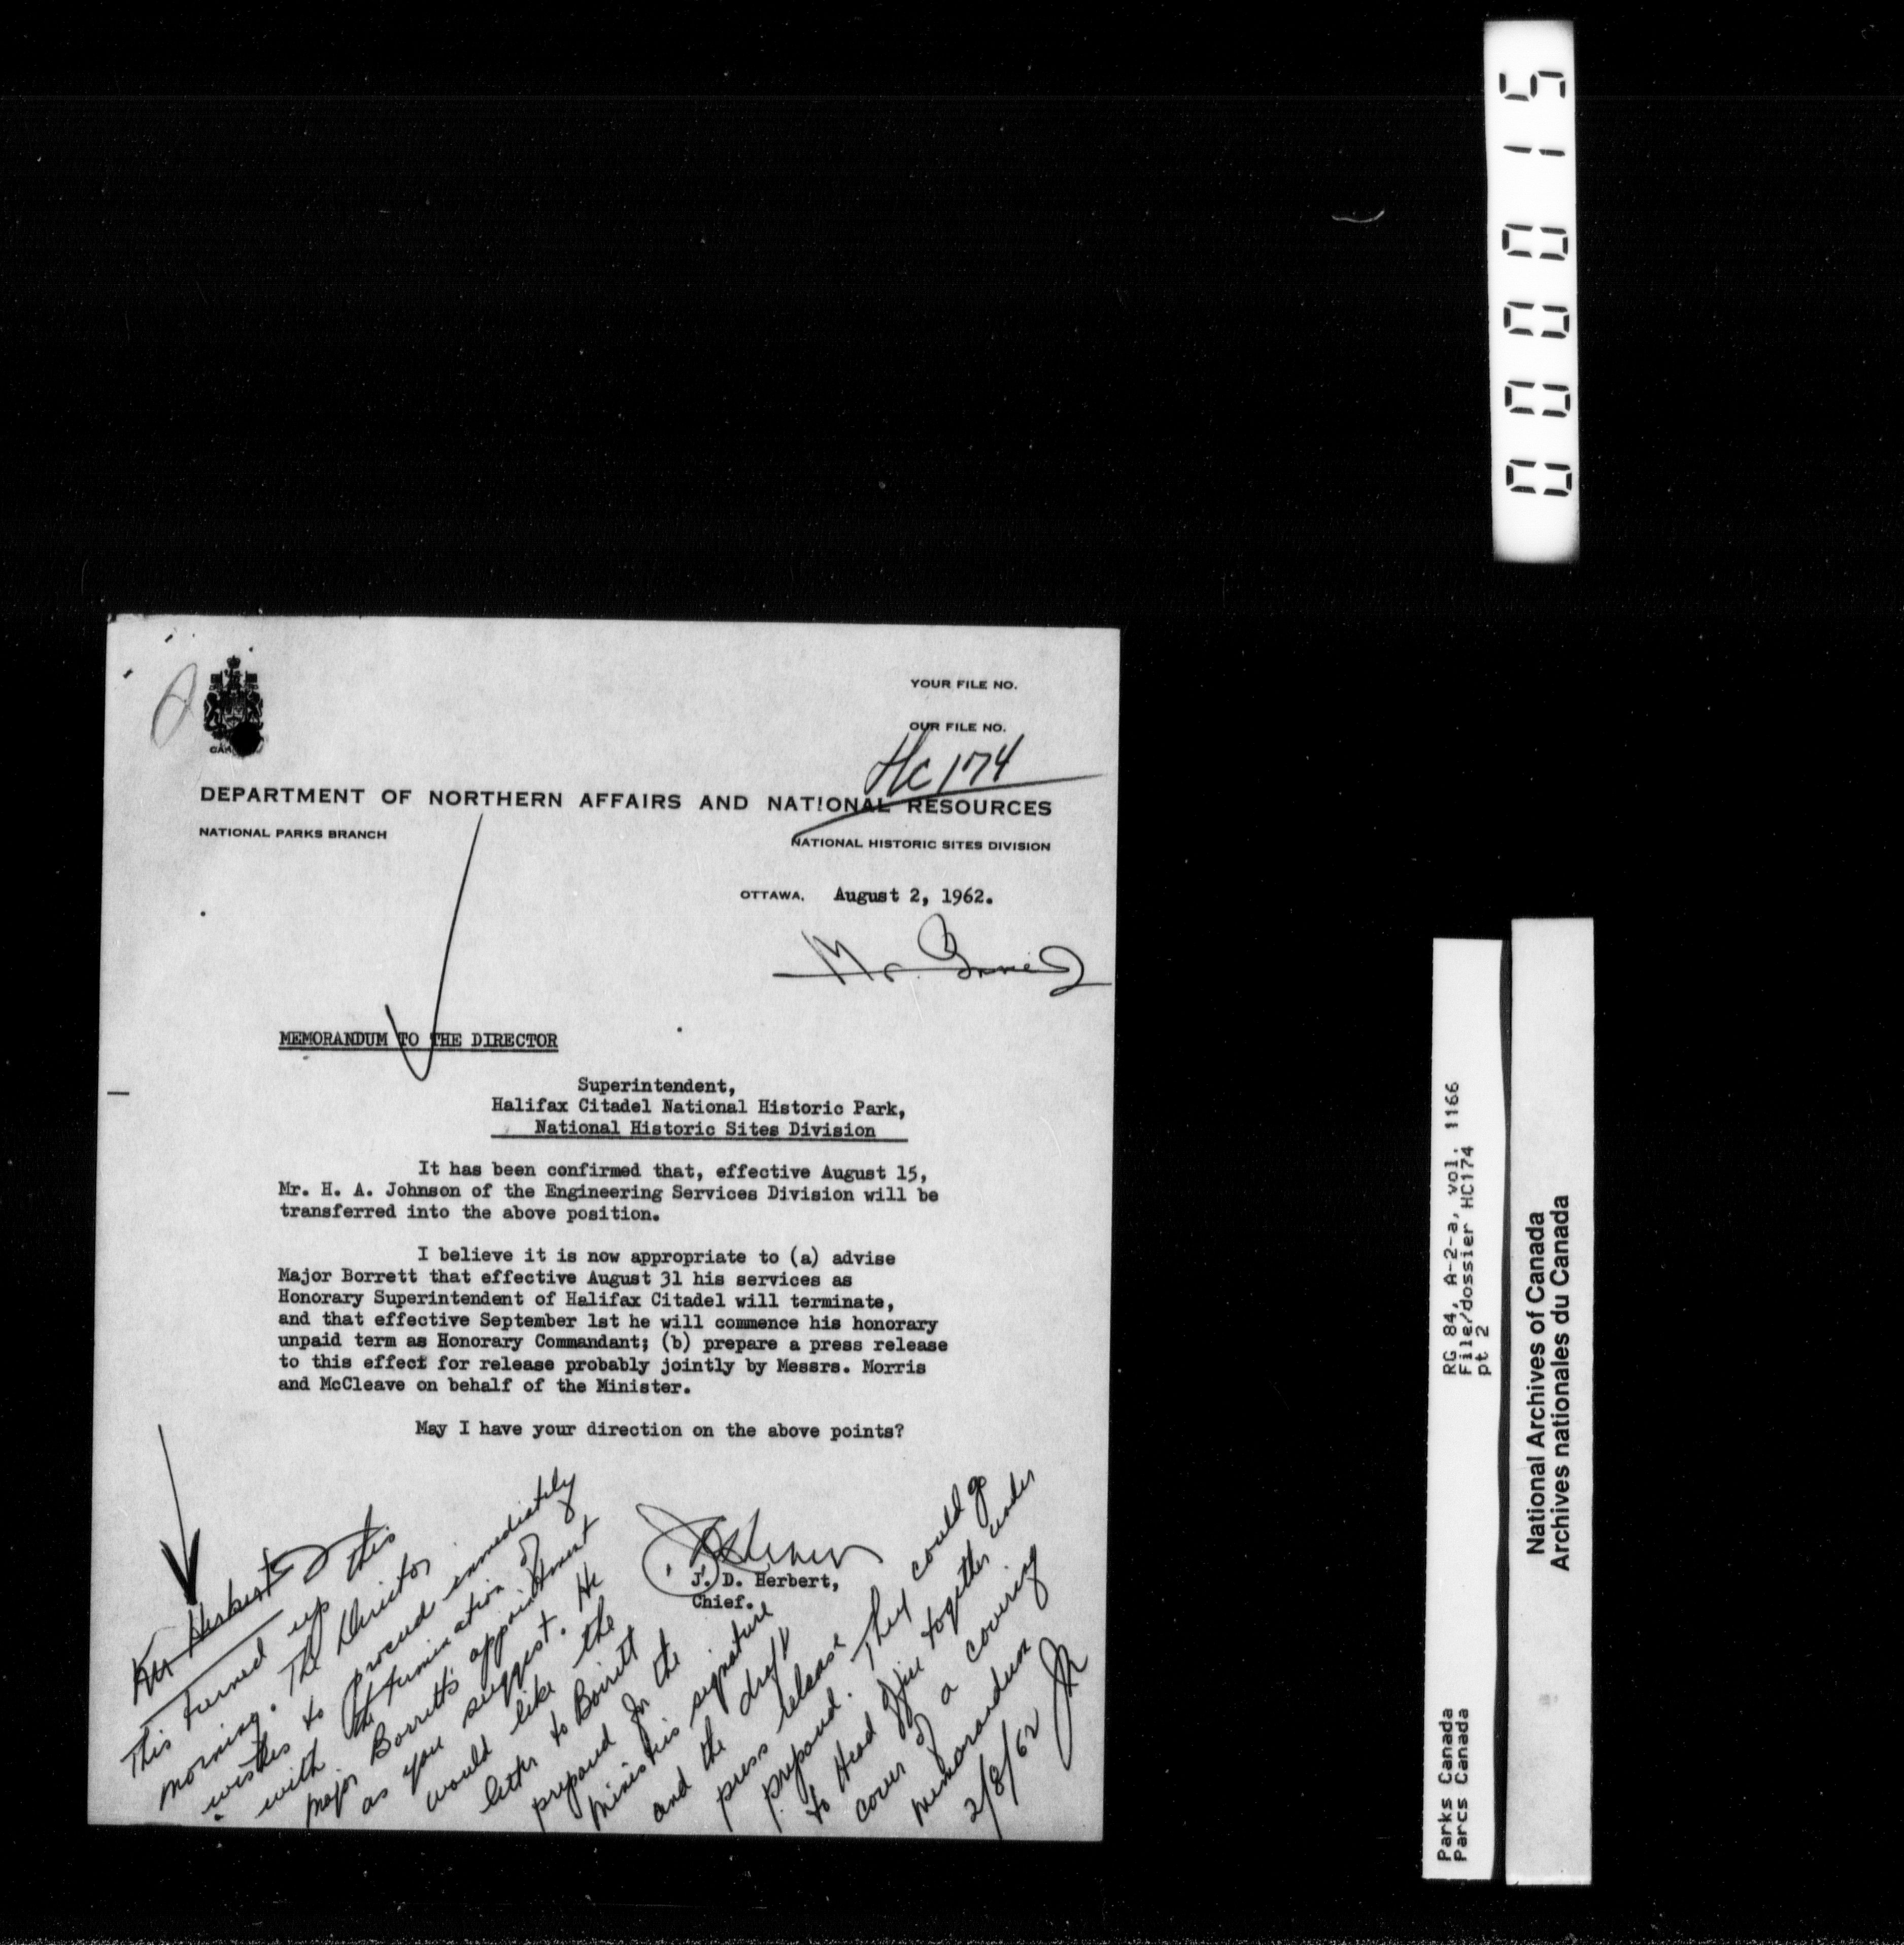 YOUR FILE NO.
OUR FILE NO.
HC 174
DEPARTMENT OF NORTHERN AFFAIRS AND NATIONAL RESOURCES
NATIONAL PARKS BRANCH
NATIONAL HISTORIC SITES DIVISION
OTTAWA, August 2, 1962.
Mr.
MEMORANDUM TO THE DIRECTOR
Superintendent,
Halifax Citadel National Historic Park,
National Historic Sites Division
It has been confirmed that, effective August 15,
Mr. H. A. Johnson of the Engineering Services Division will be
transferred into the above position.
I believe it is now appropriate to (a) advise
Major Borrett that effective August 31 his services as
Honorary Superintendent of Halifax Citadel will terminate,
and that effective September 1st he will commence his honorary
unpaid term as Honorary Commandant; (b) prepare a press release
to this effect for release probably jointly by Messrs. Morris
and McCleave on behalf of the Minister.
May I have your direction on the above points?
J. D. Herbert,
Chief.
Mr Herbert
This turned up this
morning. The Director
wishes to proceed immediately
with the termination of
Major Borrett's appointment
as you suggest. He
would like the
letter to Borrett
prepared for the
Minister's signature
and the draft
press release
prepared. They could go
to Head Office together under
cover of a covering
memorandum
2/8/62
000015
RG 84, A-2-a, vol. 1166
File/dossier HC174
pt 2
Parks Canada
Parcs Canada
National Archives of Canada
Archives nationales du Canada